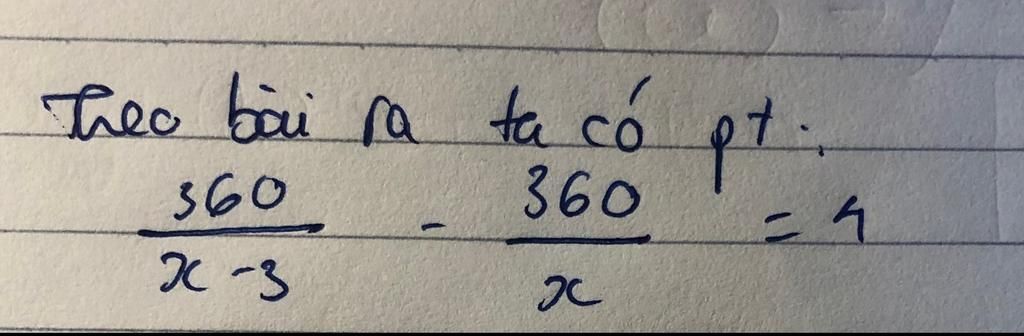 Theo bài ra ta có pt:
360 / x - 3 - 360 / x = 4